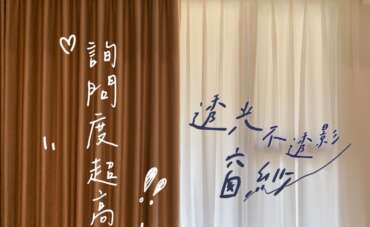 詢問度超高!!
透光不透影
窗紗